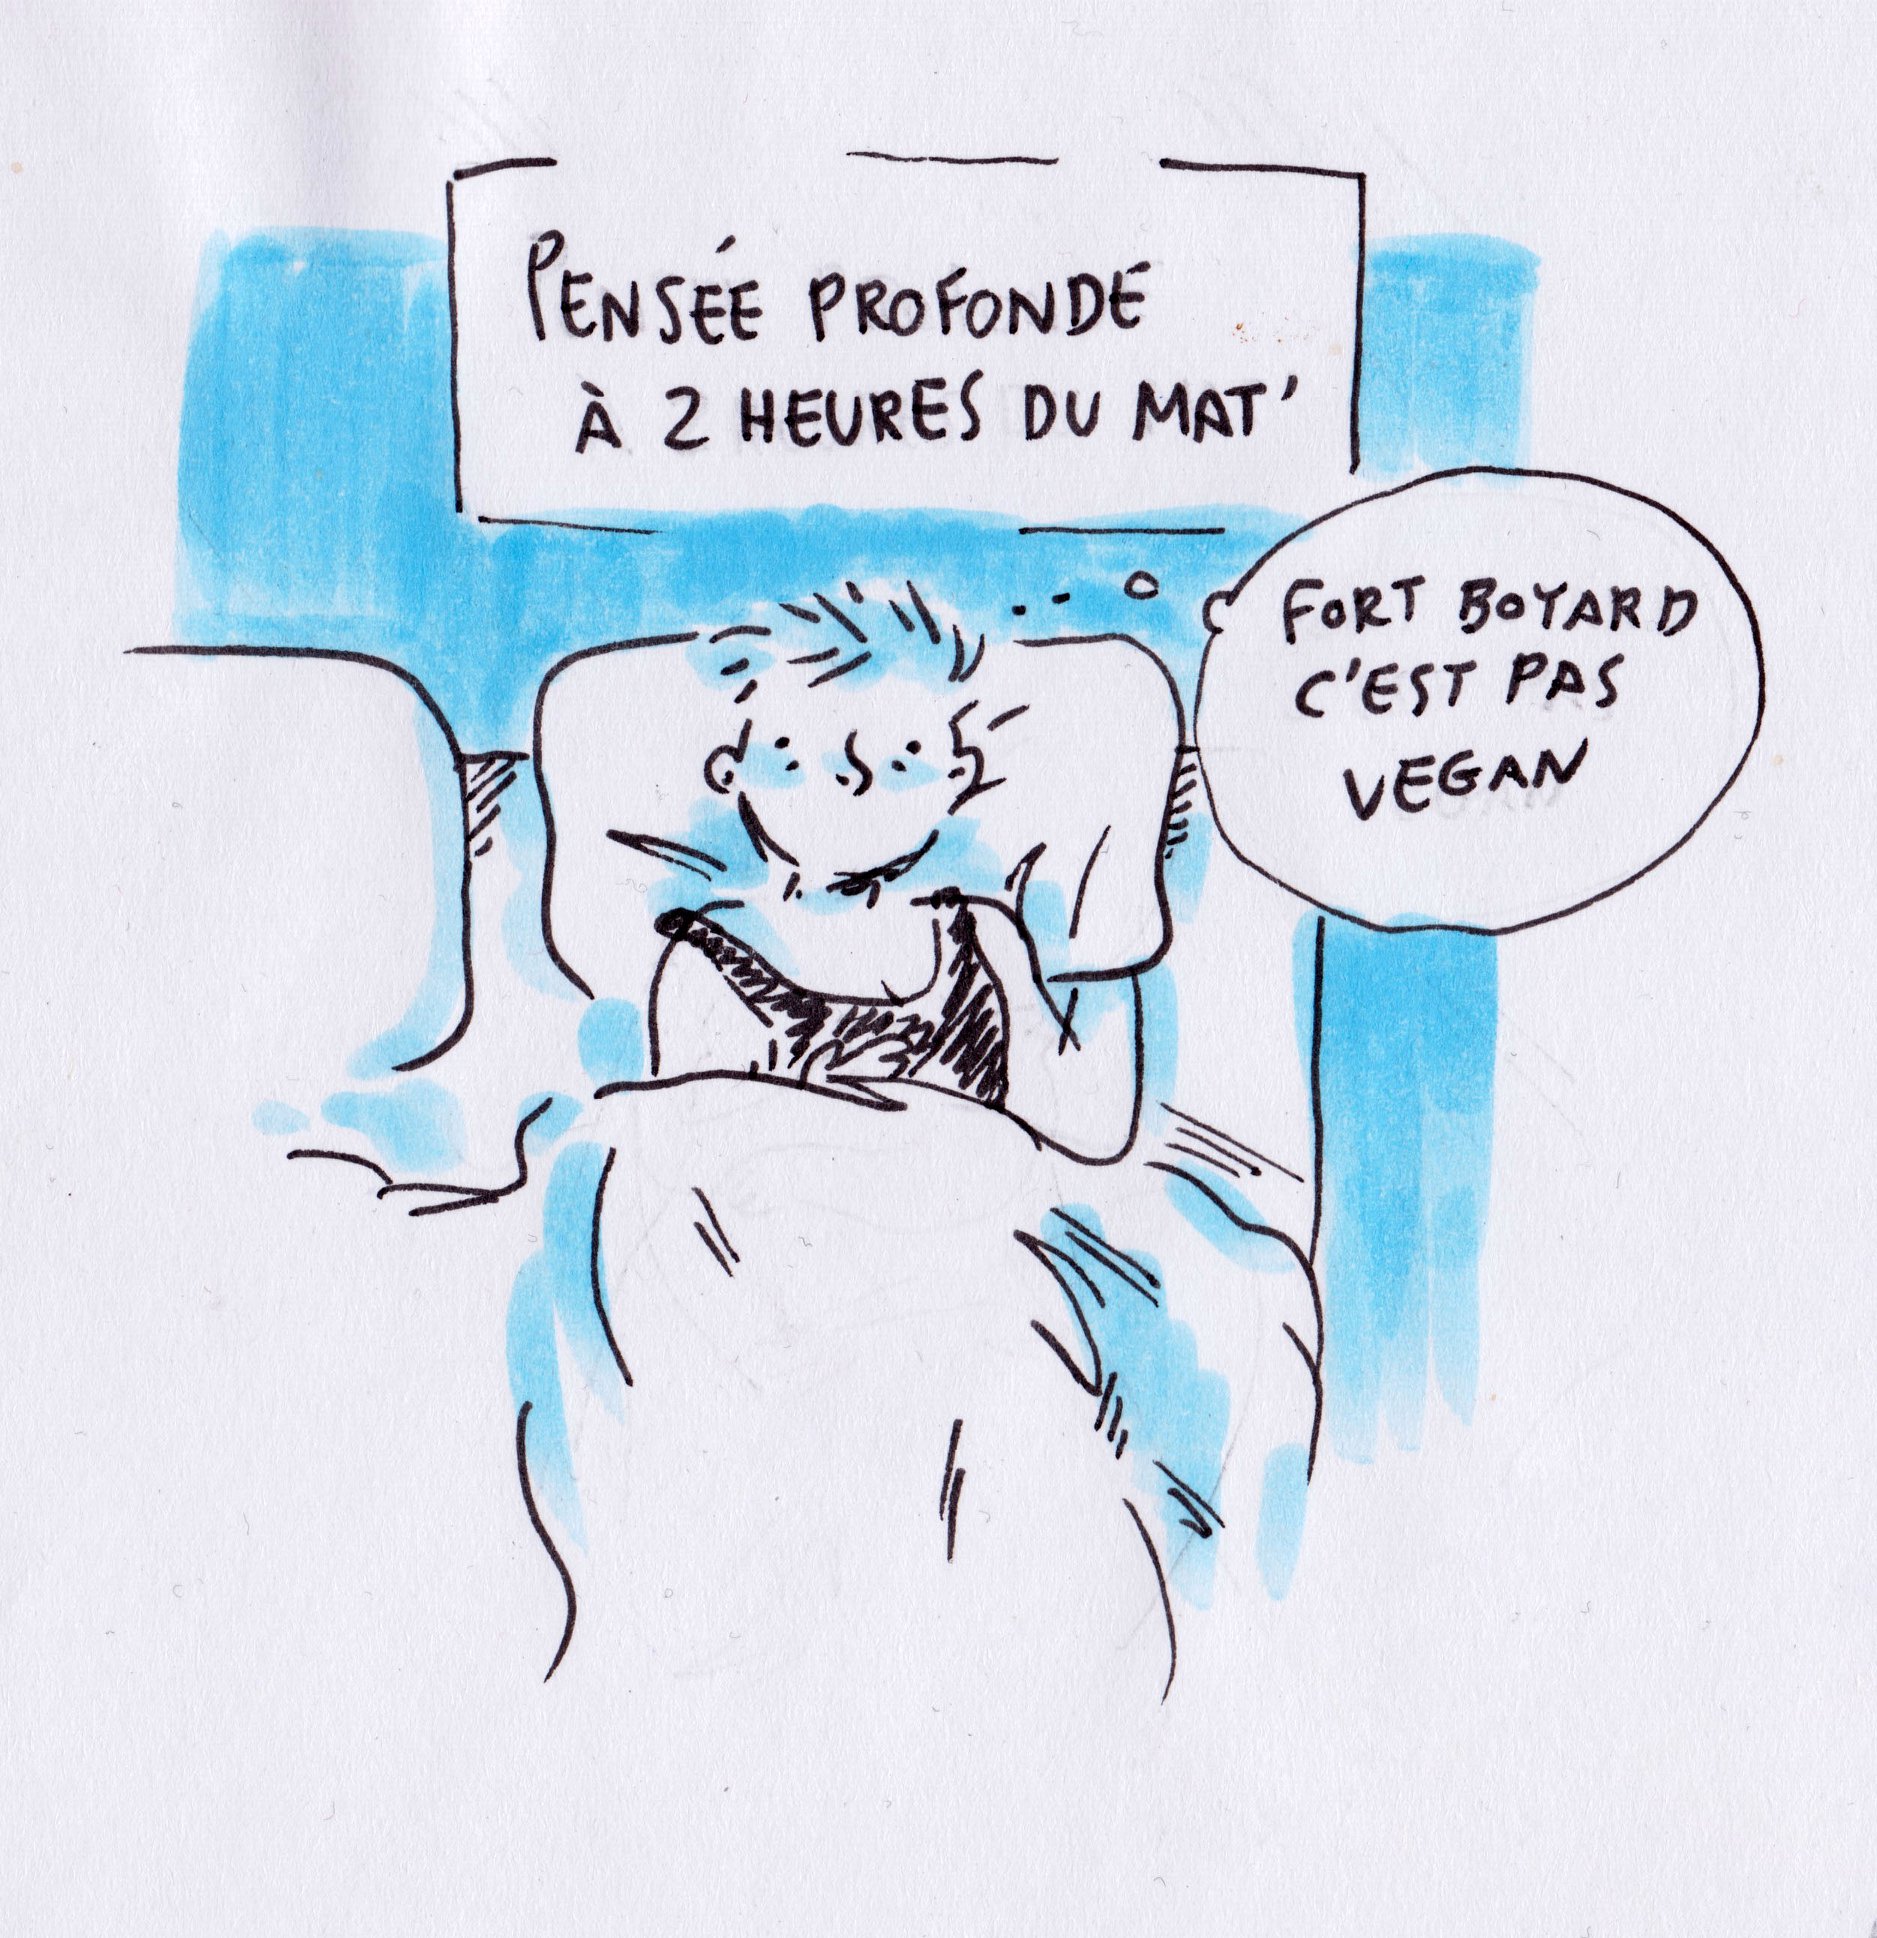 PENSÉE PROFONDE
À 2 HEURES DU MAT'
FORT BOYARD
C'EST PAS
VEGAN